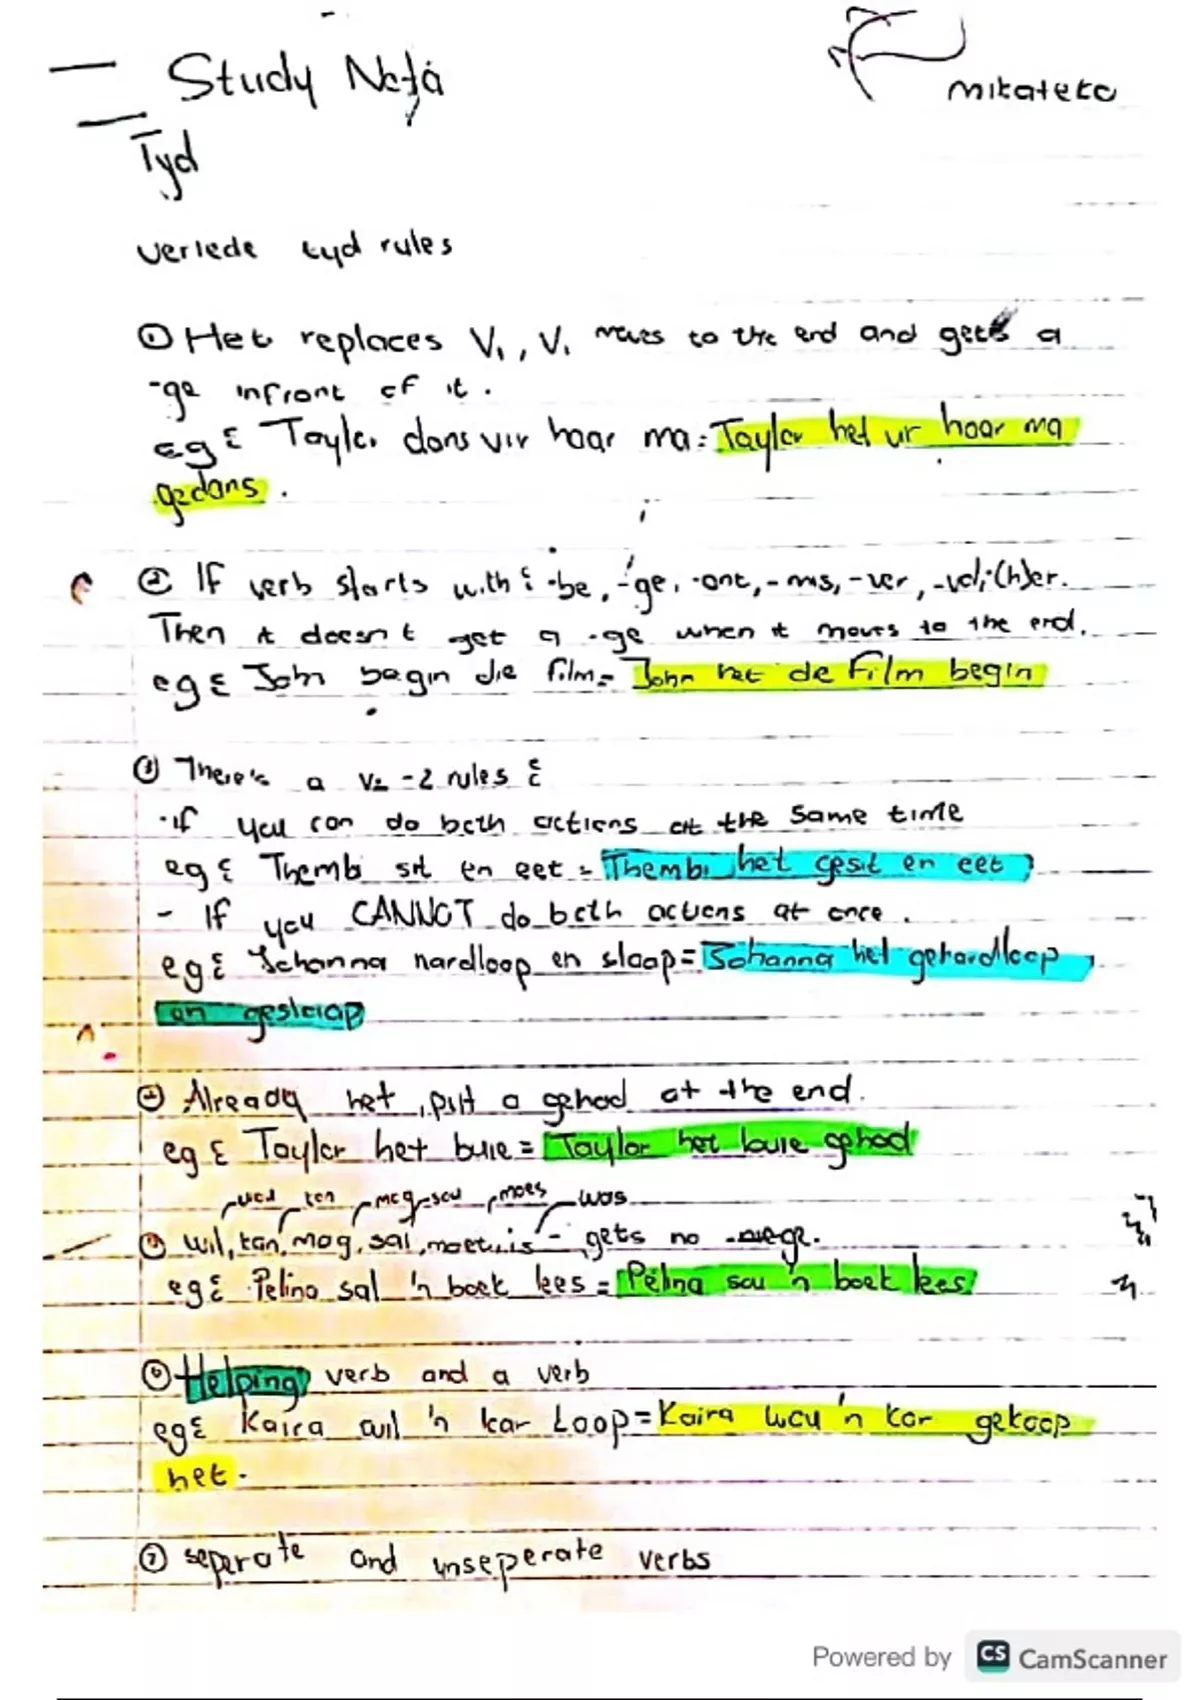 Study Nota
mikateko
Tyd
verlede tyd rules
① Het replaces V₁, V₁ moves to the end and gets a
-ge infront of it.
eg: Taylor dans vir haar ma = Taylor het vir haar ma
gedans.
② If verb starts with: -be, -ge, -ont, -mis, -ver, (h)er.
Then it doesn't get a -ge when it moves to the end.
eg: John begin die film = John het die film begin
③ There's a V₂ - 2 rules:
-if you can do both actions at the same time
eg: Thembi sit en eet = Thembi het gesit en eet
- If you CANNOT do both actions at once.
eg: Johanna hardloop en slaap = Johanna het gehardloop
en geslaap
④ Already het, put a gehad at the end.
eg: Taylor het buie = Taylor het buie gehad
wou kon mog sou moes was
⑤ wil, kan, mag, sal, moet, is - gets no ge.
eg: Pelina sal 'n boek lees = Pelina sou 'n boek lees
⑥ Helping verb and a verb
eg: Kaira wil 'n kar koop = Kaira wou 'n kar gekoop
het.
⑦ seperate and inseperate verbs
Powered by CS CamScanner